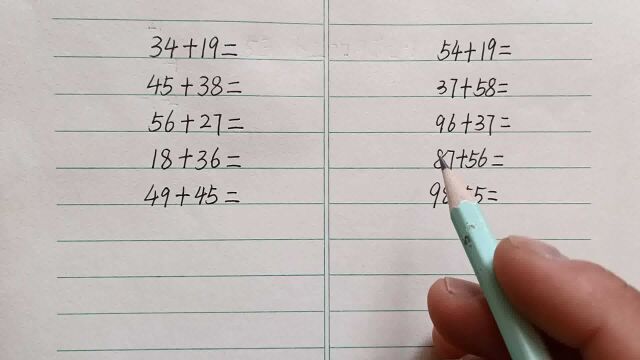 34+19=
45+38=
56+27=
18+36=
49+45=
54+19=
37+58=
96+37=
87+56=